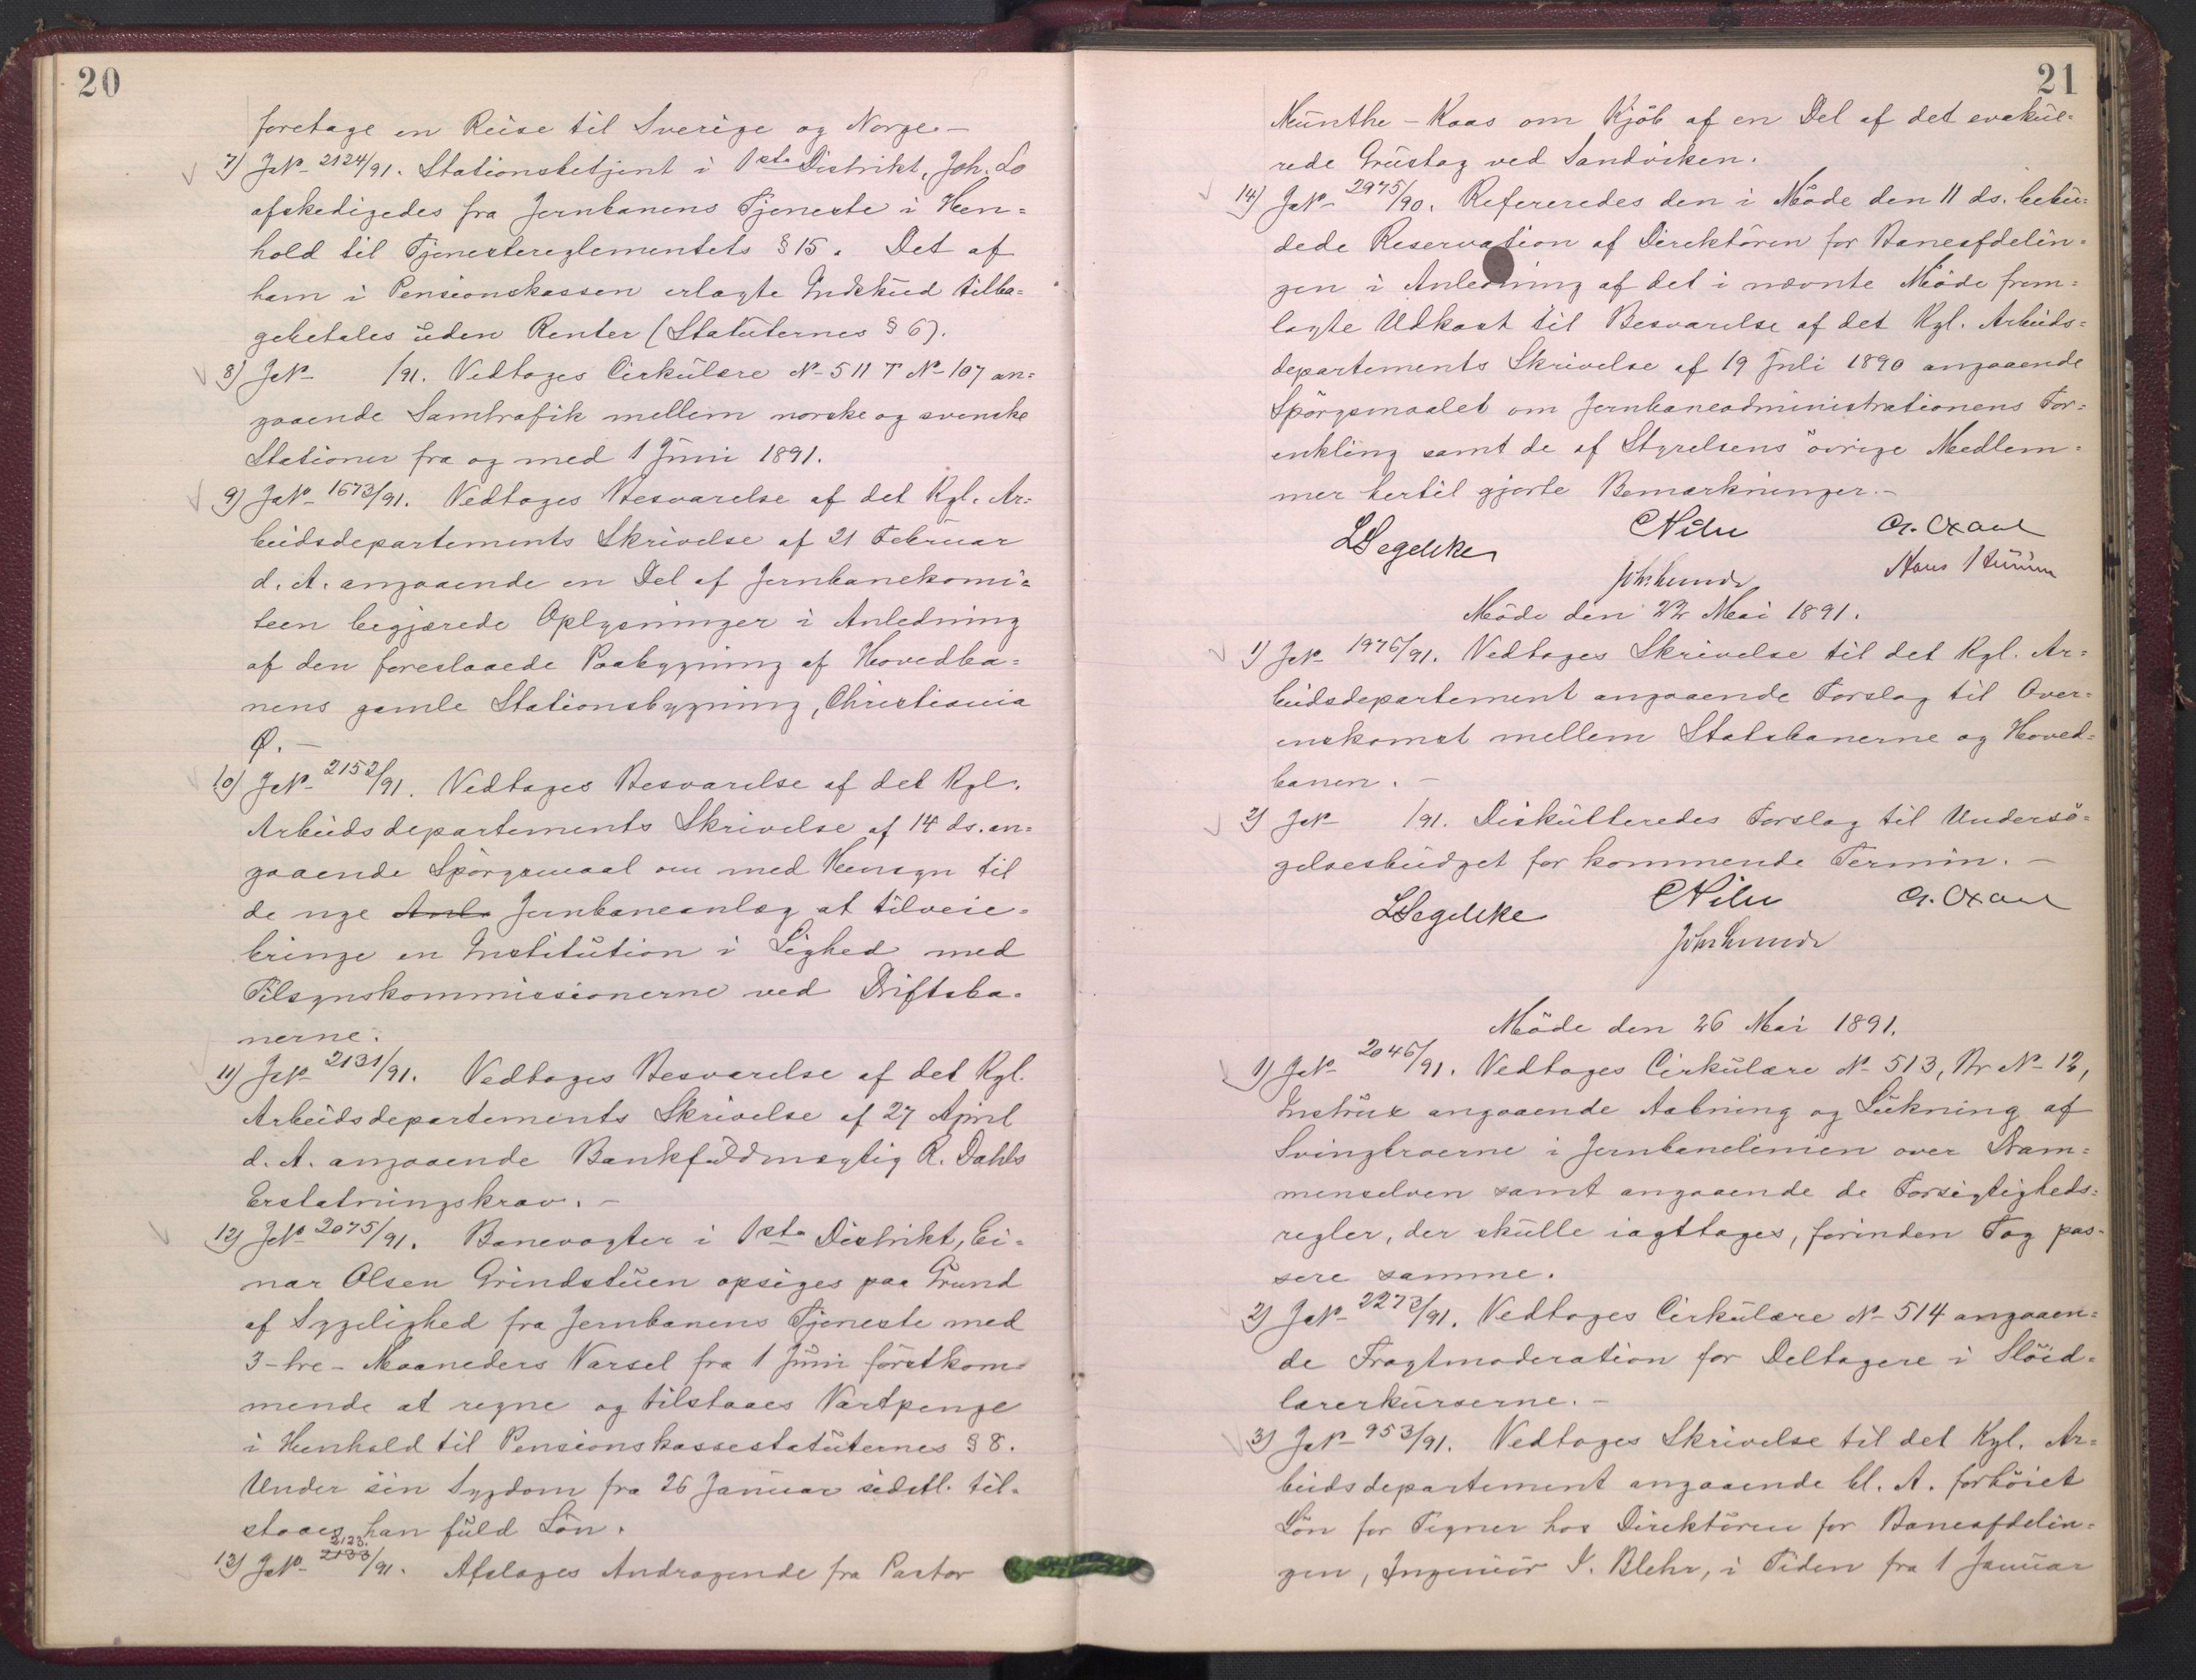 20
foretage en Reise til Sverige og Norge.-
7) JNo 2124/91. Stationsbetjent i 1ste Distrikt, Joh. Lo
afskedigedes fra Jernbanens Tjeneste i Hen=
hold til Tjenestereglementets § 15. Det af
ham i Pensionskassen erlagte Indskud tilba=
gebetales uden Renter (Statuternes § 6).
8) JNo /91. Vedtoges Cirkulære No 511 T No 107 an=
gaaende Samtrafik mellem norske og svenske
Stationer fra og med 1 Juni 1891.
9) JNo 1673/91. Vedtoges Besvarelse af det Kgl. Ar=
beidsdepartements Skrivelse af 21 Februar
d. A. angaaende en Del af Jernbanekomi=
teen begjærede Oplysninger i Anledning
af den foreslaaede Paabygning af Hovedba=
nens gamle Stationsbygning, Christiania
Ø.-
10) JNo 2152/91. Vedtoges Besvarelse af det Kgl.
Arbeidsdepartements Skrivelse af 14 ds. an=
gaaende Spörgsmaal om med Hensyn til
de nye Anl. Jernbaneanlæg at tilveie=
bringe en Institution i Lighed med
Tilsynskommissionerne ved Driftsba=
nerne.
11) JNo 2131/91. Vedtoges Besvarelse af det Kgl.
Arbeidsdepartements Skrivelse af 27 April
d. A. angaaende Bankfuldmægtig R. Dahls
Erstatningskrav.-
12) JNo 2075/91. Banevogter i 1ste Distrikt, Ei=
nar Olsen Grindstuen opsiges paa Grund
af Sygelighed fra Jernbanens Tjeneste med
3-tre- Maaneders Varsel fra 1 Juni förstkom=
mende at regne og tilstaaes Vartpenge
i Henhold til Pensionskassestatuternes § 8.
Under sin Sygdom fra 26 Januar sidstl. til=
staaes han fuld Lön.
2123.
13) JNo 2133/91. Afslages Andragende fra Pastor
21
Munthe-Kaas om Kjöb af en Del af det evakue=
rede Grustag ved Sandviken.
14) JNo 2975/90. Refereredes den i Möde den 11 ds. bebu=
dede Reservation af Direktören for Baneafdelin=
gen i Anledning af det i nævnte Möde frem=
lagte Udkast til Besvarelse af det Kgl. Arbeids=
departements Skrivelse af 19 Juli 1890 angaaende
Spörgsmaalet om Jernbaneadministrationens For=
enkling samt de af Styrelsens övrige Medlem=
mer hertil gjorte Bemærkninger.-
LSegelcke CNilu
Joh Lunde
Möde den 22 Mai 1891.
1) JNo 1976/91. Vedtoges Skrivelse til det Kgl. Ar=
beidsdepartement angaaende Forslag til Over=
enskomst mellem Statsbanerne og Hoved=
banen.-
2) JNo /91. Diskutteredes Forslag til Undersö=
gelsesbudget for kommende Termin.-
LSegelcke CNilu
Joh Lunde
Möde den 26 Mai 1891.
1) JNo 2046/91. Vedtoges Cirkulære No 513, Br No 12,
Instrux angaaende Aabning og Lukning af
Svingbroerne i Jernbanelinien over Dram=
menselven samt angaaende de Forsigtigheds=
regler, der skulle iagttages, forinden Tog pas=
sere samme.
2) JNo 2273/91. Vedtoges Cirkulære No 514 angaaen=
de Fragtmoderation for Deltagere i Slöid=
lærerkurserne.-
3) JNo 953/91. Vedtoges Skrivelse til det Kgl. Ar=
beidsdepartement angaaende bl. A. forhöiet
Lön for Tegner hos Direktören for Baneafdelin=
gen, Ingeniör I. Blehr, i Tiden fra 1 Januar